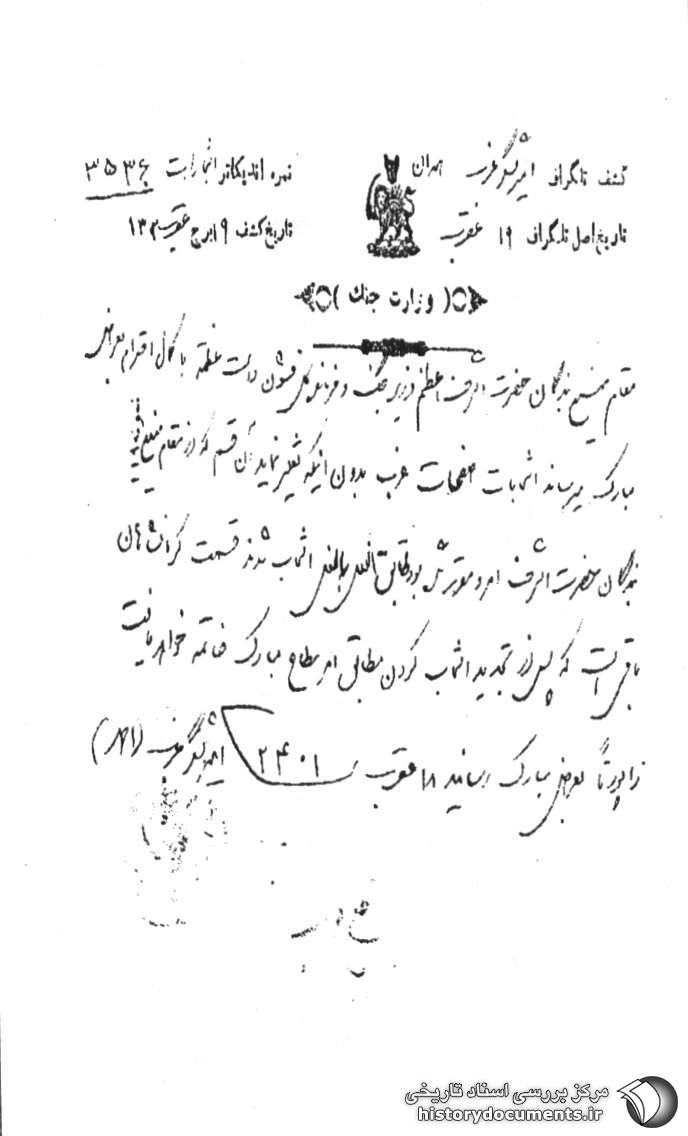 کشف تلگراف امیر لشگر غرب طهران نمره اندیکاتر انتخابات ۳۵۳۶
تاریخ اصل تلگراف ۱۹ عقرب تاریخ کشف ۱۹ برج عقرب ۱۳۰۲
(وزارت جنگ)
مقام منیع بندگان حضرت اشرف اعظم وزیر جنگ و فرمانده کل قشون دولت عظمته با کمال احترام بعرض
مبارک میرساند انتخابات صفحات غرب بدون اینکه تغییر نماید آن قسم که از مقام منیع
بندگان حضرت اشرف امر و مقرر شده بود مطابق النعل بالنعل انتخاب شدند قسمت کرمانشاهان
باقی است که پس از تجدید انتخاب کردن مطابق امر مطاع مبارک خاتمه خواهد یافت
راپورتاً بعرض مبارک رسانید ۱۸ عقرب ۲۴۰۱ امیر لشگر غرب (احمد)
مرکز بررسی اسناد تاریخی
historydocuments.ir